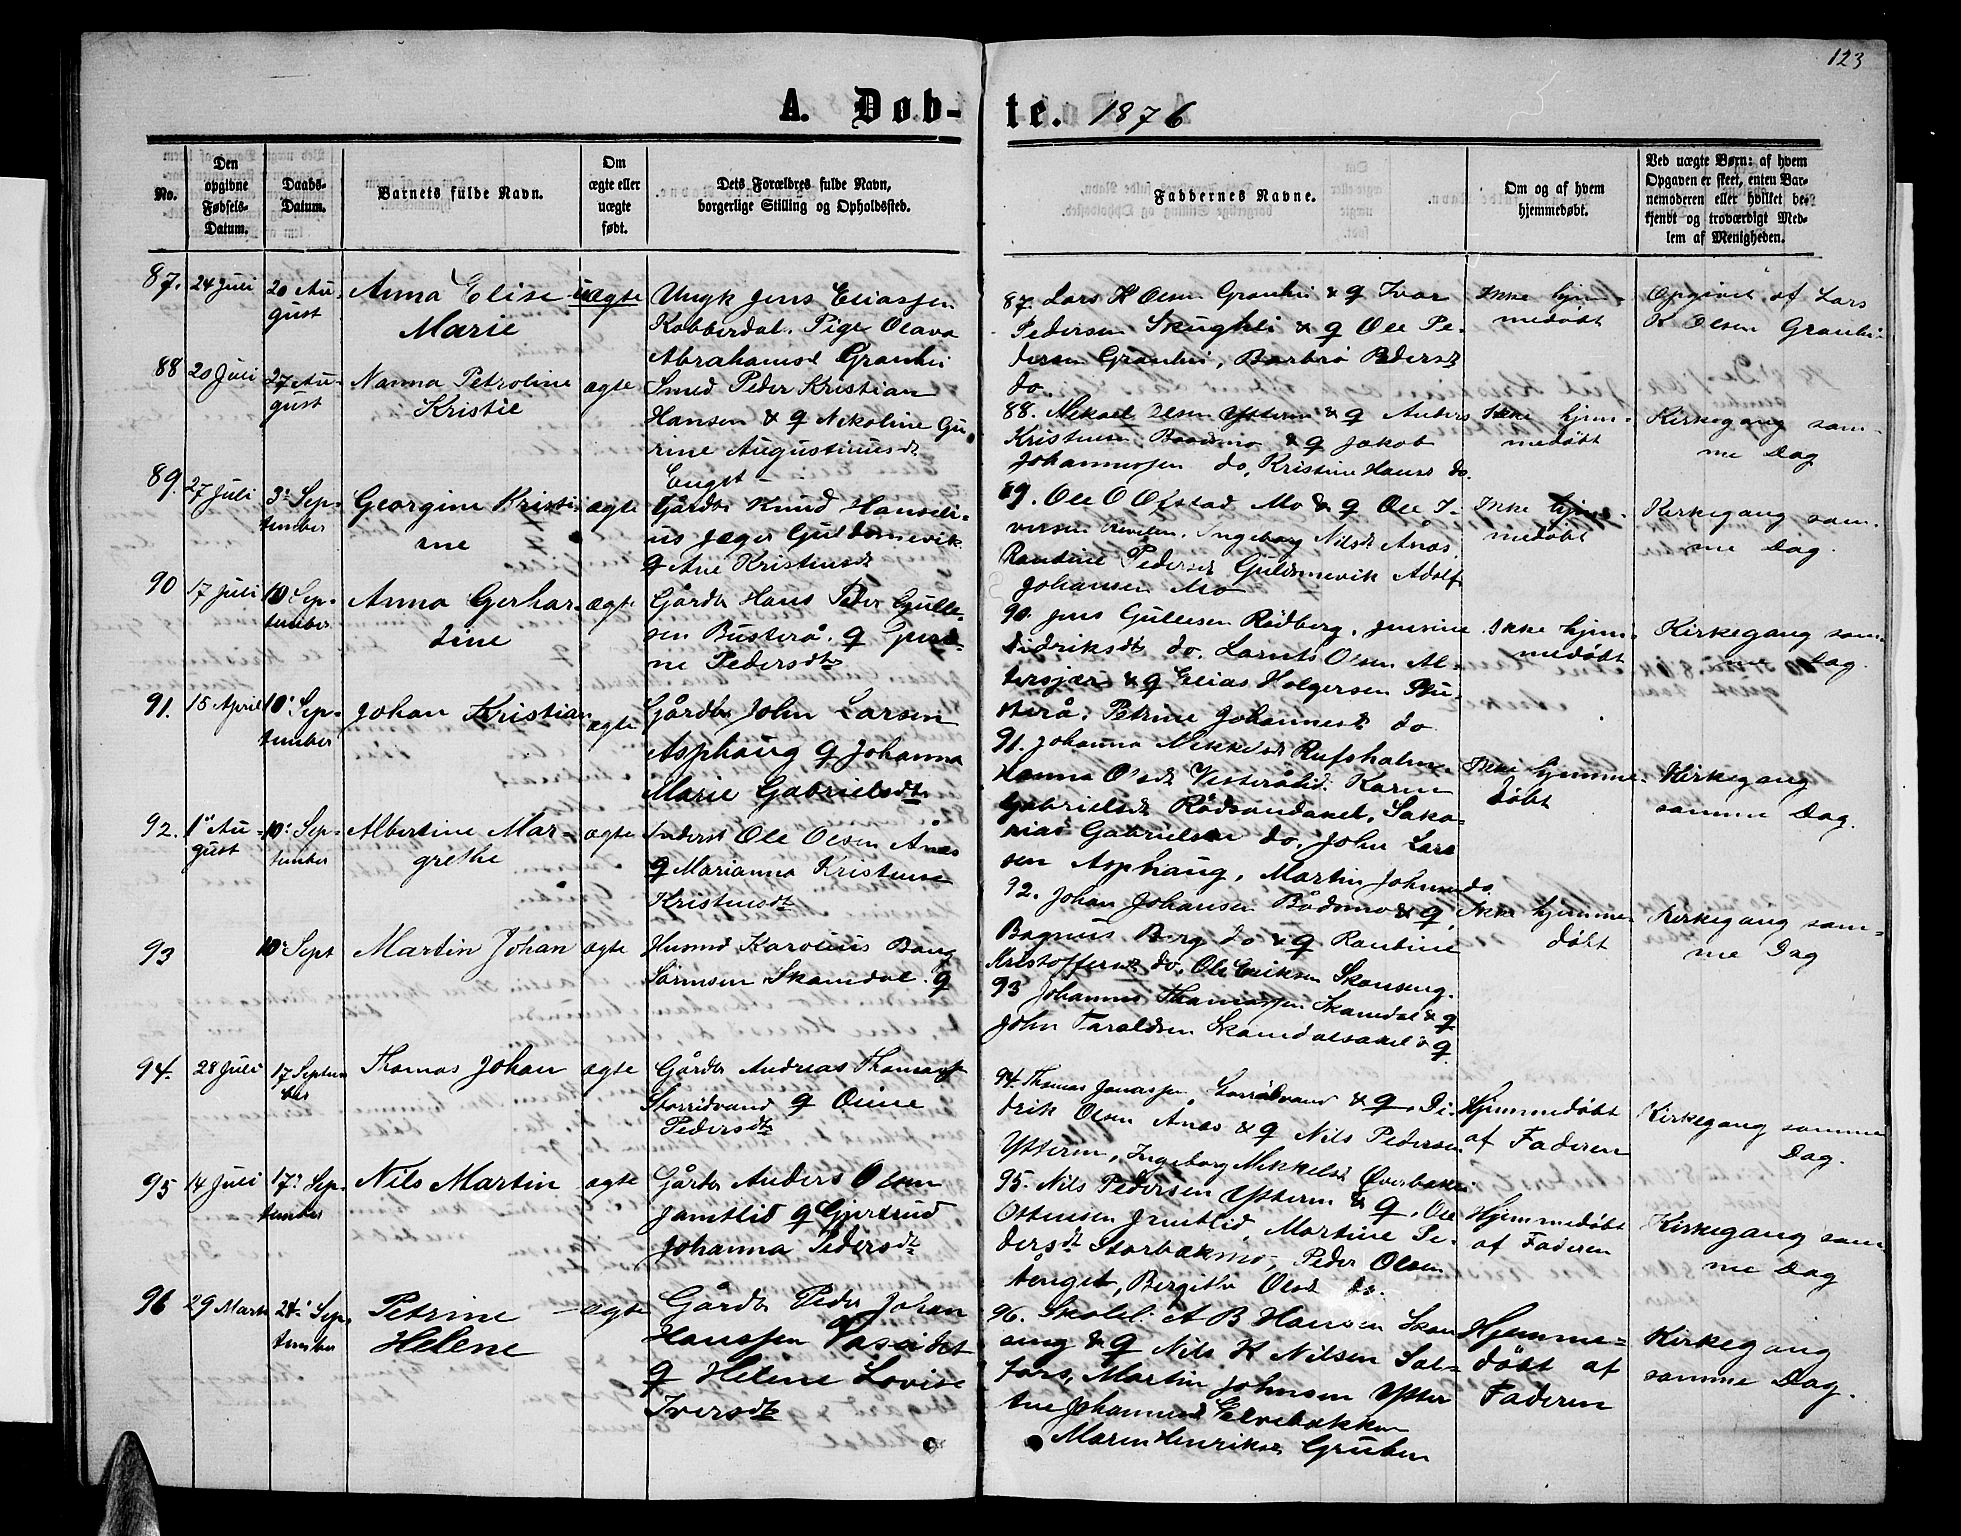 123
A. Døb-
te. 1876
No.
Den
opgivne
Fødsels-
Datum.
Daabs-
Datum.
Barnets fulde Navn.
Om
ægte eller
uægte
født.
Dets Forældres fulde Navn,
borgerlige Stilling og Opholdssted.
Faddernes Navne.
Om og af hvem
hjemmedøbt.
Ved uægte Børn: af hvem
Opgaven er skeet, enten Bar-
nemoderen eller hvilket be-
kjendt og troværdigt Med-
lem af Menigheden.
87. 24 Juli
20 Au-
gust
Anna Elise
Marie
uægte
Ungk Jens Eliassen
Kobberdal. Pige Olava
Abrahamsd Granhei
87. Lars K Olsen Granhei & q Ivar
Pedersen Skughei & q Ole Pe-
dersen Granhei, Barbro Pedersd
do
Ikke hjem-
medøbt
Opgivet af Lars
K Olsen Granhei
88 20 Juli
27 Au-
gust
Nanna Petroline
Kristie
ægte
Smed Peder Kristian
Hansen & q Nikoline Gu-
rine Augustinusdt
Enget
88. Mikael Olsen Ytteren & q Anders
Kristensen Baadsmo & q Jakob
Johannessen do, Kristine Hansd do.
Ikke hjem-
medøbt
Kirkegang sam-
me Dag
89. 27 Juli
3' Sep-
tember
Georgine Kristi-
ne
ægte
Gårdbr Knud Hanseli-
us Jæger Guldsmevik
q Ane Kristensdt
89. Ole O Ofstad Mo & q Ole I-
versen Ingeborg Nilsd Ånæs,
Rantine Pedersd Guldsmevik Adolf
Johansen Mo
Ikke hjem-
medøbt
Kirkegang sam-
me Dag.
90 17 Juli
10 Sep-
tember
Anna Gerhar-
dine
ægte
Gårdbr Hans Peder Gulle-
sen Busterå. q Jensi-
ne Pedersdtr
90. Jens Gullesen Rødberg, Jensine
Didriksdt do, Larnts Olsen Al-
tersjær & q Elias Holgersen Bu-
sterå. Petrine Johannesd do
Ikke hjem-
medøbt
Kirkegang sam-
me Dag.
91. 15 April
10' Sep-
tember
Johan Kristian
ægte
Gårdbr John Larsen
Asphaug q Johanna
Marie Gabrielsdtr
91. Johanna Mikkelsd Rufsholm.
Hanna Olsdt Vesterålid. Karen
Gabrielsd Rødsandaxel, Saka-
rias Gabrielsen do, John Lar-
sen Asphaug, Martin Johnsen do.
Ikke hjemme-
døbt
Kirkegang
samme Dag.
92. 1' Au-
gust
10' Sep-
tember
Albertine Mar-
grethe
ægte
Inderst Ole Olsen Ånæs
q Marianna Kristense
Kristensdt
92. Johan Johansen Bådsmo & q,
Bagnus Berg do & q Rantine
Kristoffersd do, Ole Eriksen Skonseng.
Ikke hjemme-
døbt
Kirkegang sam-
me Dag
93
10' Sept
Martin Johan
ægte
Husmd Karolius Bang
Sørensen Skamdal. q
93 Johannes Thomassen Skamdal & q
John Taraldsen Skamdalsaxel & q
94. 28 Juli
17 Septem
ber
Thomas Johan
ægte
Gårdbr Andreas Thomass
Storridvand q Oline
Pedersdtr
94. Thomas Jonassen, & q, Di-
drik Olsen Ånæs & q Nils Pedersen
Ytteren, Ingeborg Mikkelsd Øverbakk
Hjemmedøbt
af Faderen
Kirkegang samme
Dag.
95 14 Juli
17' Sep-
tember
Nils Martin
ægte
Gårdbr Anders Olsen
Jamtlid q Gjertrud
Johanna Pedersdt
95. Nils Pedersen Ytteren & q, Ole
Ottensen Jamtlid, Martine Pe-
dersdt Storbækmo, Peder Olsen
Enget, Bergithe Olsd do.
Hjemmedøbt
af Faderen
Kirkegang sam-
me Dag
96 29 Marts
24' Sep-
tember
Petrine
Helene
ægte
Gårdbr Peder Johan
Hanssen Vasvidet
q Helene Lovise
Iversdtr
96. Skolel. A B Hansen Skon
seng & q Nils K Nilsen Sel-
fors, Martin Johnsen Ytter
Johannesd Elvebakken
Maren Henriksd Gruben
Hjemme-
døbt af
Faderen
Kirkegang
samme Dag.